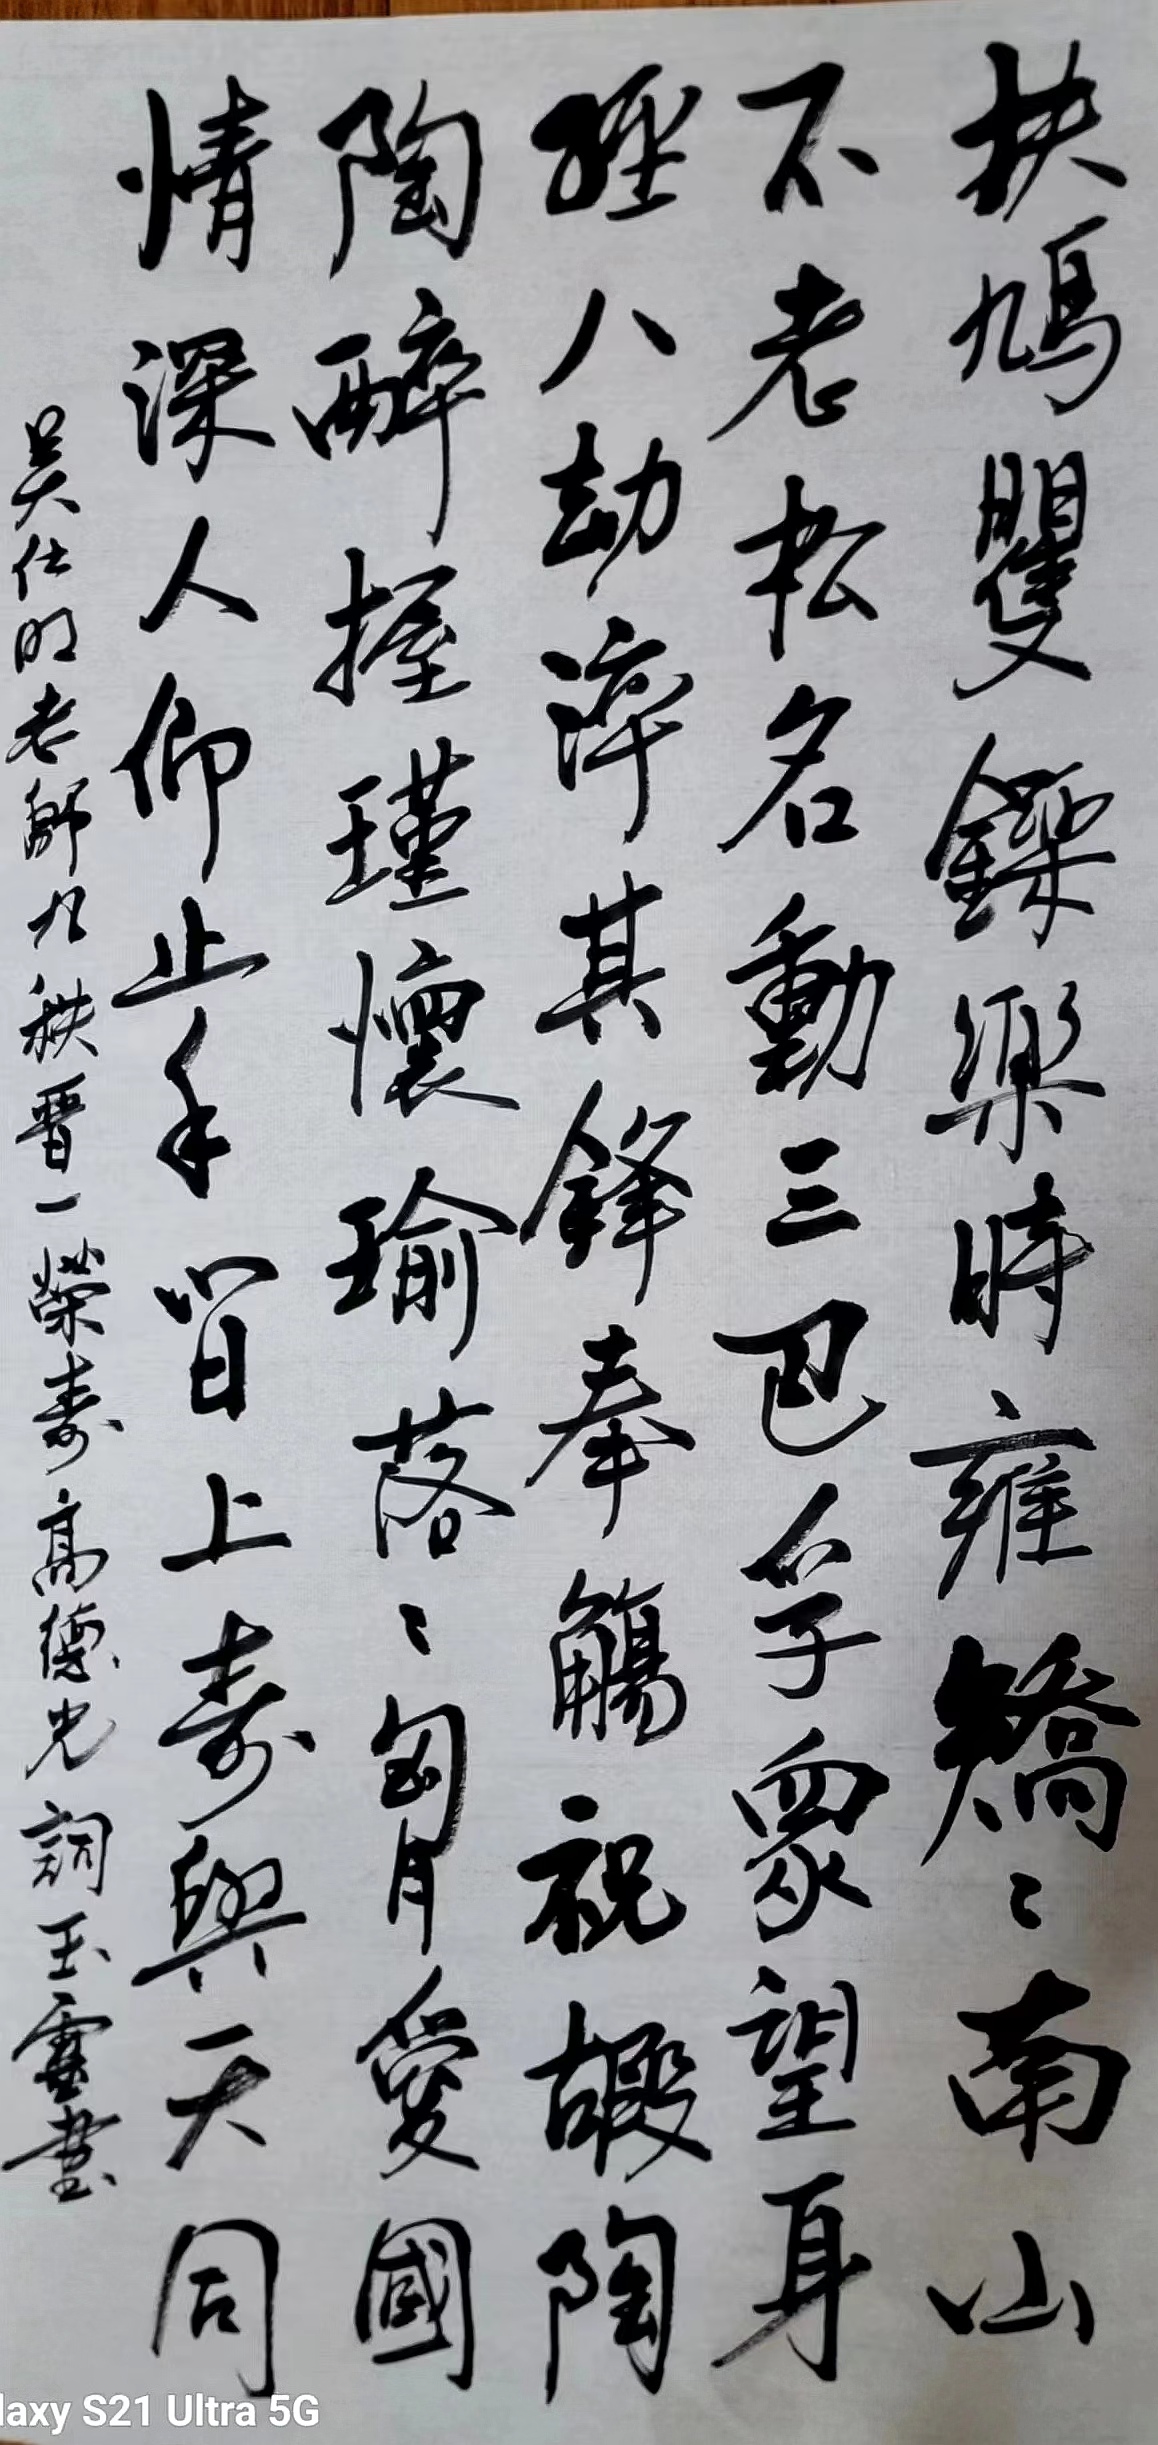 扶鳩矍鑠樂時雍矯〻南山
不老松名動三巴孚衆望身
經八劫淬其鋒奉觴祝嘏陶
陶醉握瑾懷瑜落〻胷愛國
情深人仰止年皆上壽與天同
吴仕明老師九秩晋一榮壽 高德光 詞 玉靈書
laxy S21 Ultra 5G